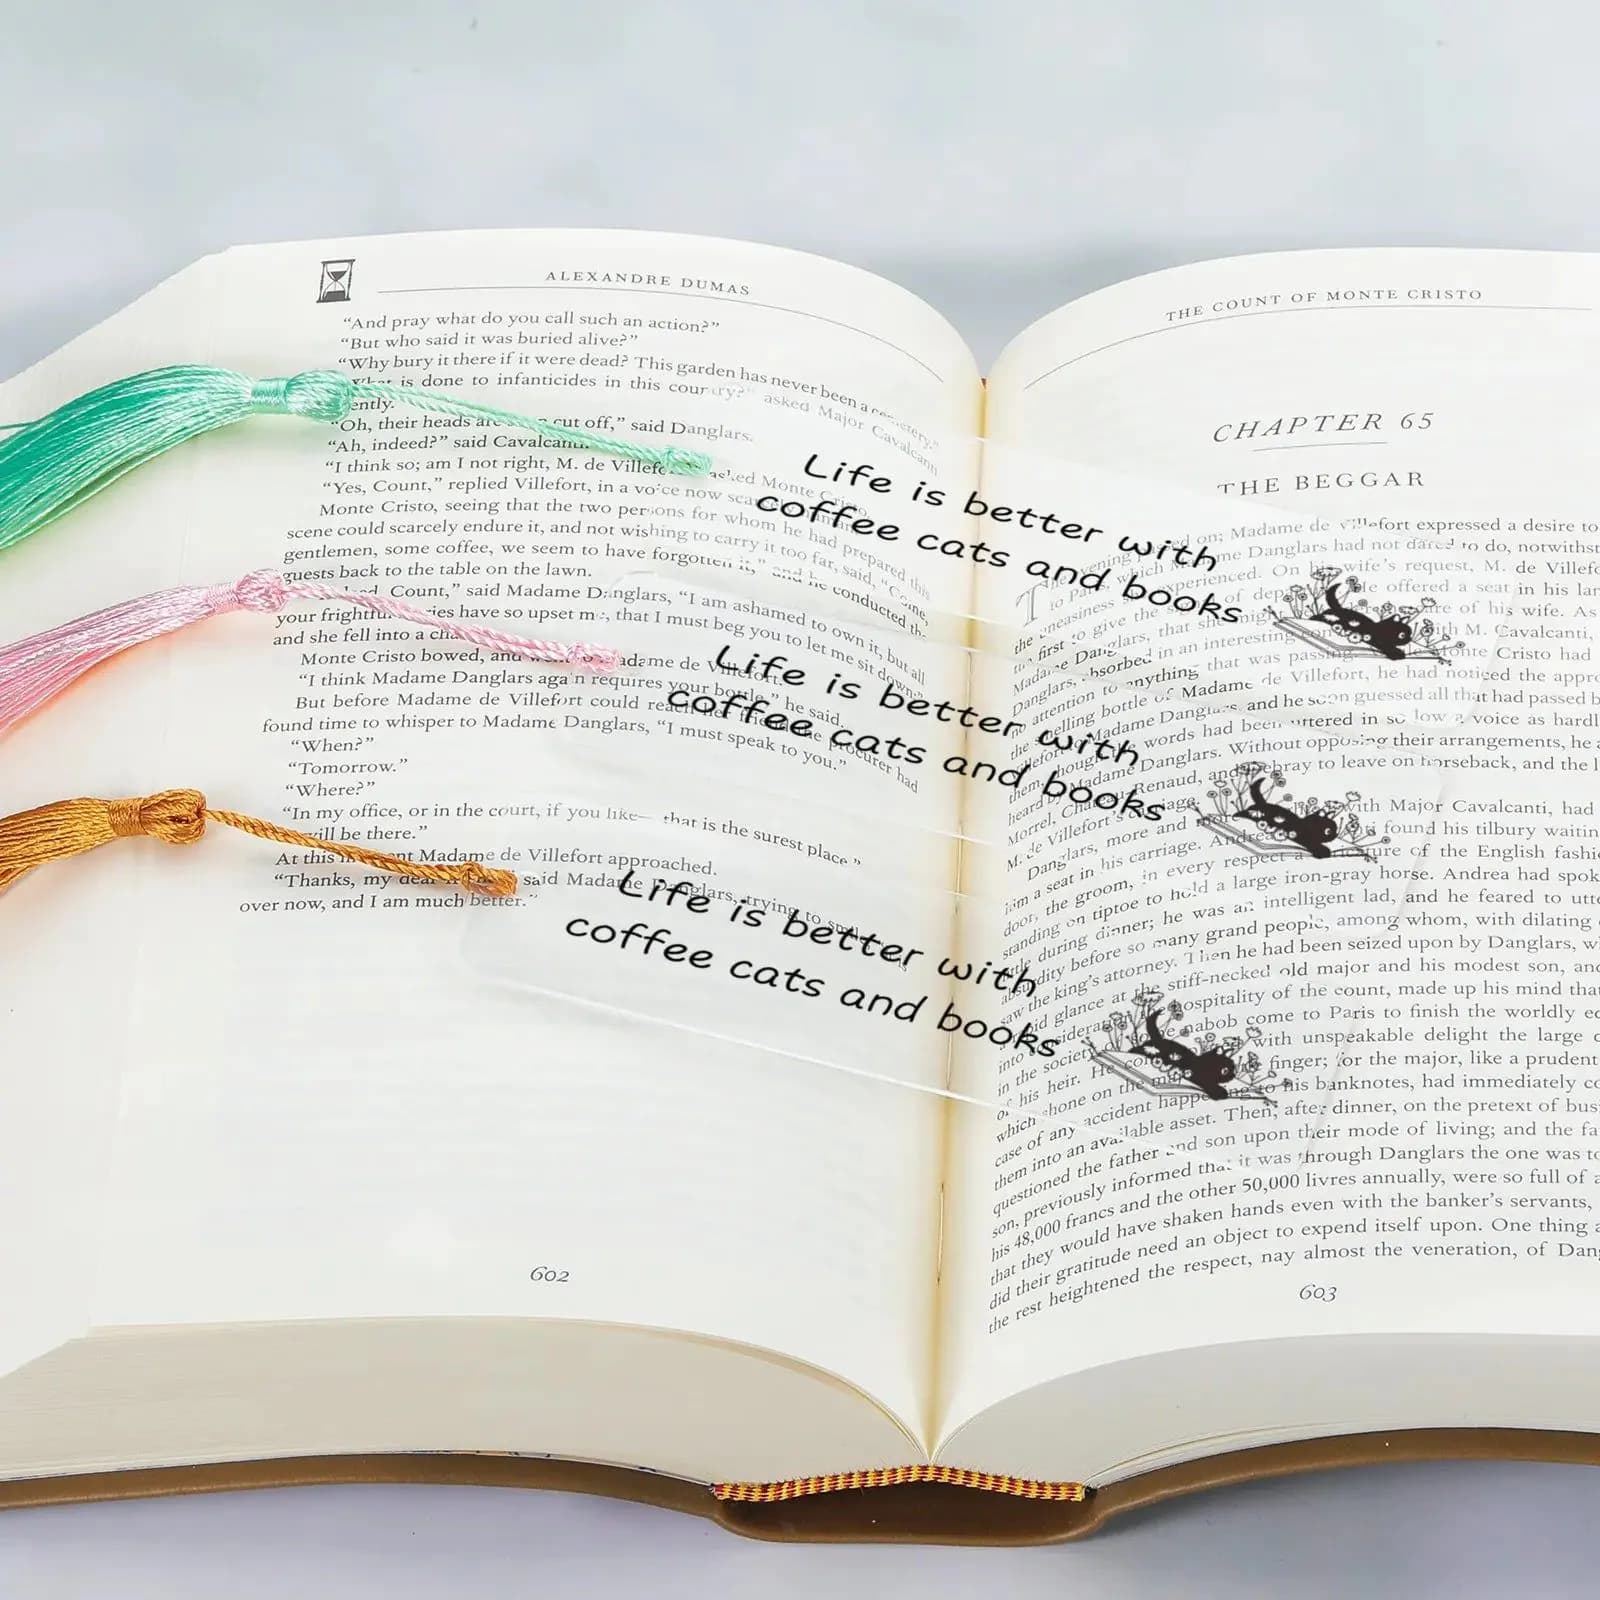 ALEXANDRE DUMAS
"And pray what do you call such an action?"
"But who said it was buried alive?"
"Why bury it there if it were dead? This garden has never been a cemetery."
is done to infanticides in this country?" asked Major Cavalcanti
ently.
"Oh, their heads are cut off," said Danglars.
"Ah, indeed?" said Cavalcanti.
"I think so; am I not right, M. de Villefort asked Monte Cristo.
"Yes, Count," replied Villefort, in a voice now
Monte Cristo, seeing that the two persons for whom he had prepared this
scene could scarcely endure it, and not wishing to carry it too far, said, "Come,
gentlemen, some coffee, we seem to have forgotten it," and he conducted the
guests back to the table on the lawn.
Count," said Madame Danglars, "I am ashamed to own it, but all
your frightful ries have so upset me, that I must beg you to let me sit down,"
and she fell into a
Monte Cristo bowed, and Madame de Villefort.
"I think Madame Danglars again requires your bottle," he said.
But before Madame de Villefort could reach her friend the procurer had
found time to whisper to Madame Danglars, "I must speak to you."
"When?"
"Tomorrow."
"Where?"
"In my office, or in the court, if you like— that is the surest place."
will be there."
At this Madame de Villefort approached.
"Thanks, my dear said Madame Danglars, trying to
over now, and I am much better."
602
Life is better with
coffee cats and books
Life is better with
coffee cats and books
Life is better with
coffee cats and books
THE COUNT OF MONTE CRISTO
CHAPTER 65
THE BEGGAR
on; Madame de Villefort expressed a desire to
to which Madame Danglars had not dared to do, notwithst
the uneasiness experienced. On wife's request, M. de Villefo
the first to give the offered a seat in his lan
Madame Danglars, that she of his wife. As
Danglars, absorbed in an interesting with M. Cavalcanti,
no attention to anything that was passing. Monte Cristo had
the smelling bottle of Madame de Villefort, he had noticed the appro
to Madame Danglars, and he soon guessed all that had passed b
them, though the words had been uttered in so low a voice as hardl
heard by Madame Danglars. Without opposing their arrangements, he a
Morrel, Château-Renaud, and Debray to leave on horseback, and the l
M. de Villefort's carriage.
Danglars, more and more with Major Cavalcanti, had
him a seat in his carriage. Andrea found his tilbury waitin
door, the groom, in every respect a caricature of the English fashi
standing on tiptoe to hold a large iron-gray horse. Andrea had spok
little during dinner; he was an intelligent lad, and he feared to utte
absurdity before so many grand people, among whom, with dilating
saw the king's attorney. Then he had been seized upon by Danglars, w
glance at the stiff-necked old major and his modest son, and
into consideration hospitality of the count, made up his mind that
in the society of some nabob come to Paris to finish the worldly ed
of his heir. He with unspeakable delight the large d
which shone on the finger; for the major, like a prudent
case of any accident happening to his banknotes, had immediately co
them into an available asset. Then, after dinner, on the pretext of bus
questioned the father and son upon their mode of living; and the fa
son, previously informed that it was through Danglars the one was to
his 48,000 francs and the other 50,000 livres annually, were so full of a
that they would have shaken hands even with the banker's servants,
did their gratitude need an object to expend itself upon. One thing a
the rest heightened the respect, nay almost the veneration, of Dang
603